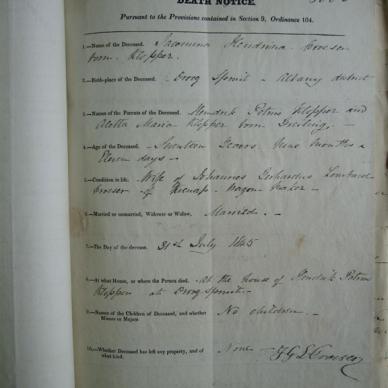 DEATH NOTICE,
Pursuant to the Provisions contained in Section 9, Ordinance 104.
1.—Name of the Deceased. Jacomina Hendrina
born Klopper.
2.—Birth-place of the Deceased. Albany district
3.—Names of the Parents of the Deceased. Hendrik Petrus Klopper and
Aletta Maria Klopper born
4.—Age of the Deceased. Seventeen Years nine months &
Eleven days —
5.—Condition in life. Wife of Johannes Gerhardus Lombard
of Wagon Maker —
6.—Married or unmarried, Widower or Widow, Married. —
7.—The day of the decease. 21st July 1845
8.—At what House, or where the Person died. At the house of Hendrik Petrus
Klopper at
9.—Names of the Children of Deceased, and whether
Minors or Majors No children —
10.—Whether Deceased has left any property, and of
what kind. None —